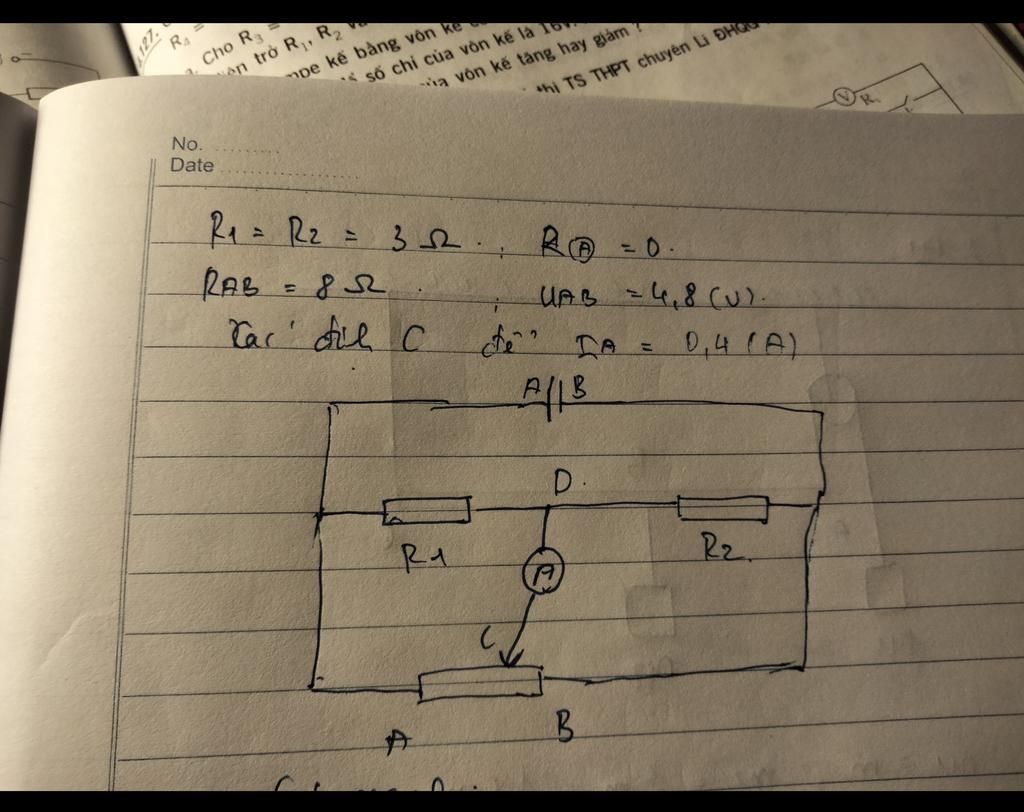 127.
R4 =
Cho R3 =
trở R1, R2
mpe kế bằng vôn kế
số chỉ của vôn kế là 16V.
của vôn kế tăng hay giảm ?
thi TS THPT chuyên Lí ĐHQG
V
No. ..........
Date ......................
R1 = R2 = 3 Ω . ; R(A) = 0.
RAB = 8 Ω . ; UAB = 4,8 (V).
Xác định C để IA = 0,4 (A)
A B
D.
R1 R2
A
C
A B